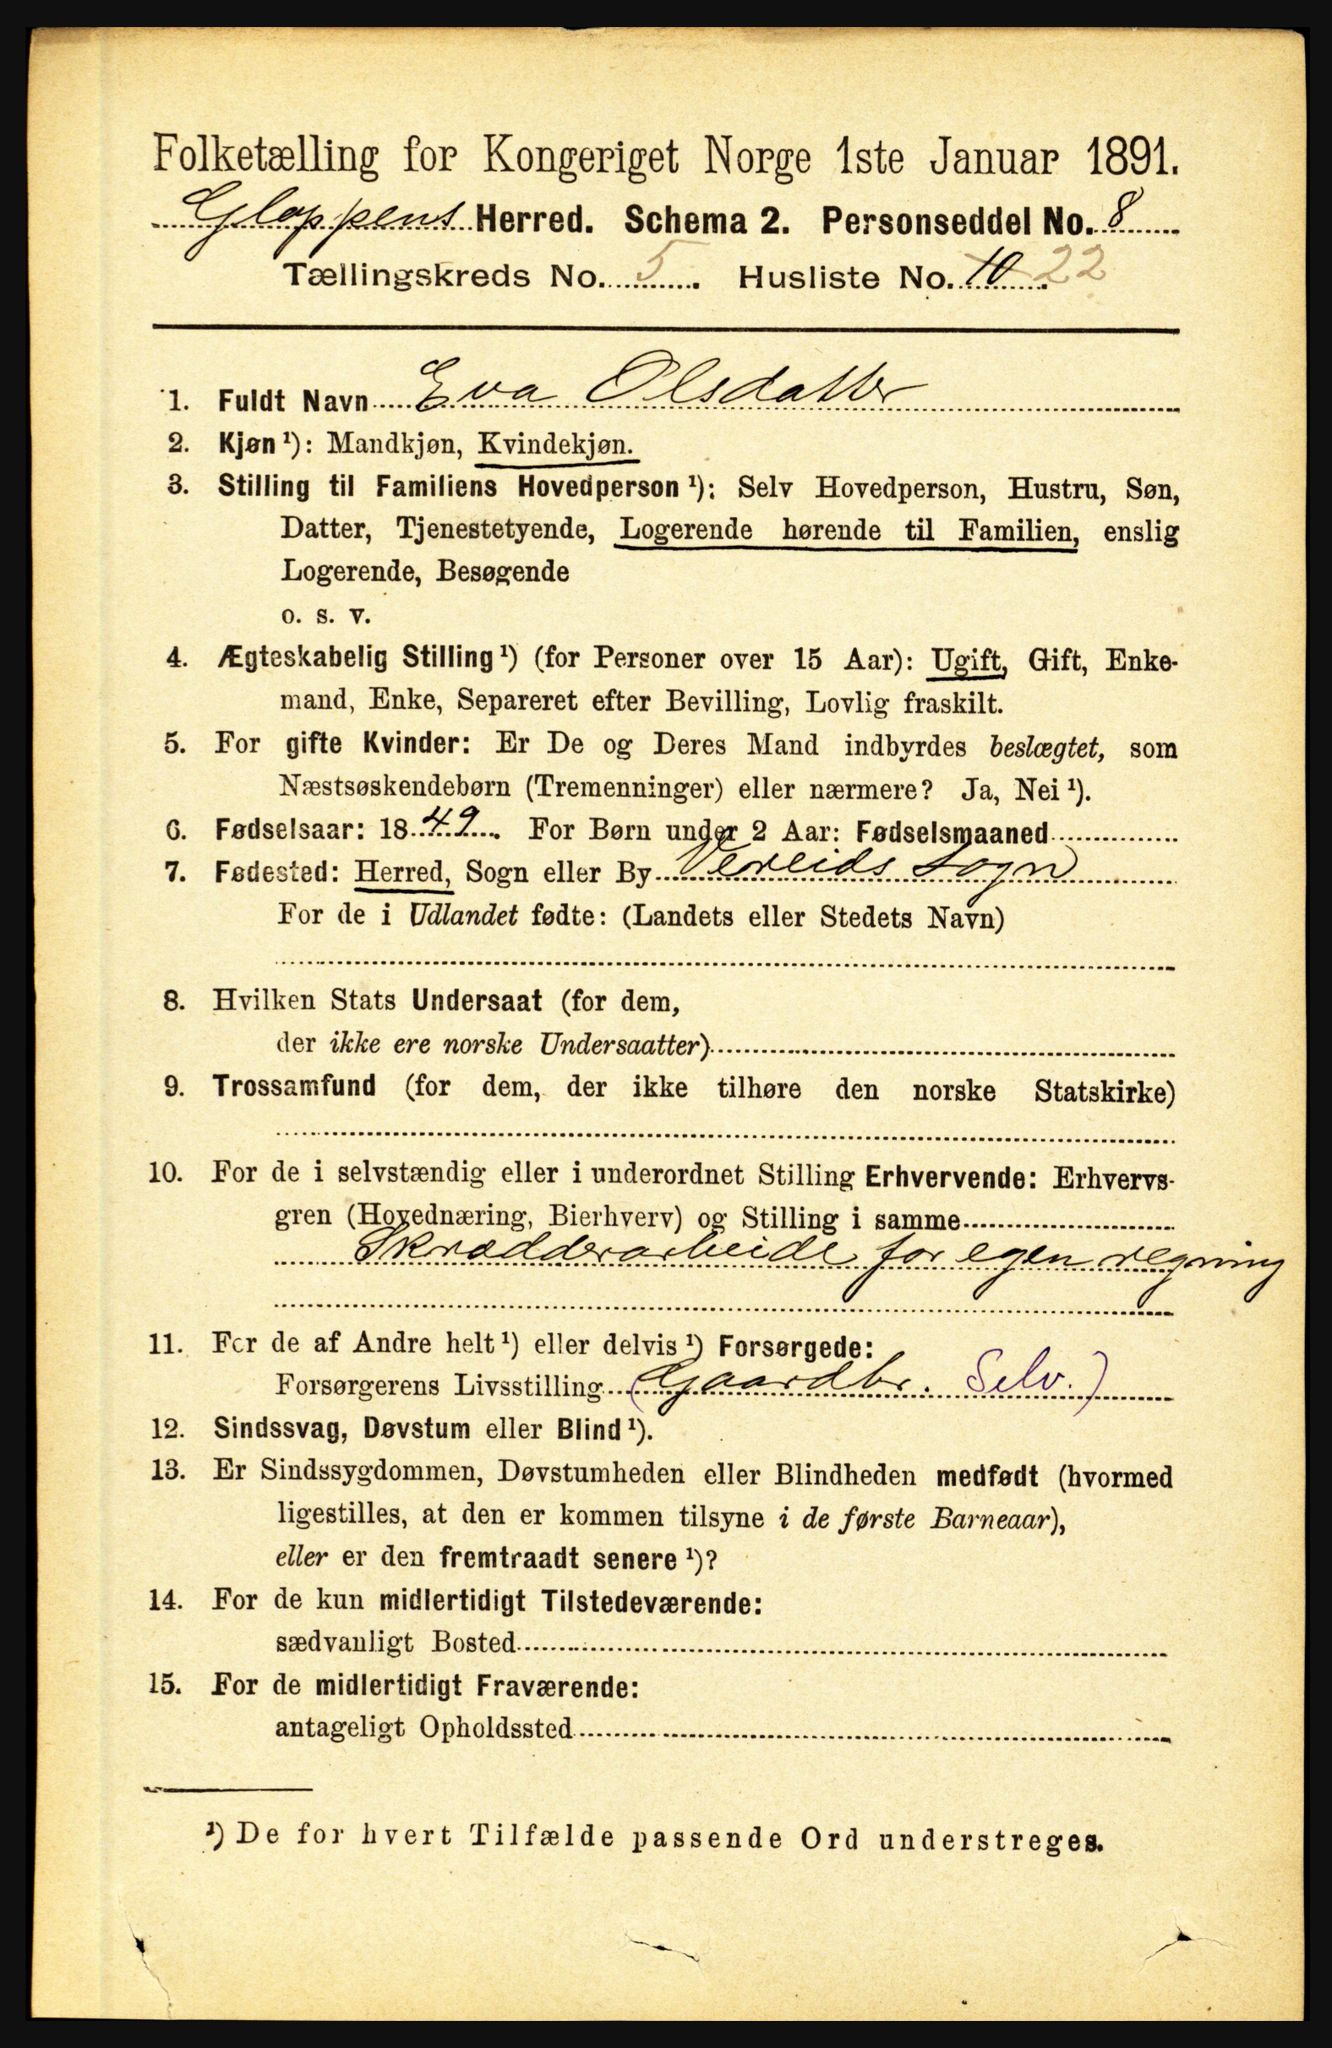 Folketælling for Kongeriget Norge 1ste Januar 1891.
Gloppens Herred. Schema 2. Personseddel No. 8
Tællingskreds No. 5. Husliste No. 10. 22
1. Fuldt Navn Eva Olsdatter
2. Kjøn ¹): Mandkjøn, Kvindekjøn.
3. Stilling til Familiens Hovedperson ¹): Selv Hovedperson, Hustru, Søn,
Datter, Tjenestetyende, Logerende hørende til Familien, enslig
Logerende, Besøgende
o. s. v.
4. Ægteskabelig Stilling ¹) (for Personer over 15 Aar): Ugift, Gift, Enke-
mand, Enke, Separeret efter Bevilling, Lovlig fraskilt.
5. For gifte Kvinder: Er De og Deres Mand indbyrdes beslægtet, som
Næstsøskendebørn (Tremenninger) eller nærmere? Ja, Nei ¹).
6. Fødselsaar: 1849. For Børn under 2 Aar: Fødselsmaaned
7. Fødested: Herred, Sogn eller By Vereids Sogn
For de i Udlandet fødte: (Landets eller Stedets Navn)
8. Hvilken Stats Undersaat (for dem,
der ikke ere norske Undersaatter)
9. Trossamfund (for dem, der ikke tilhøre den norske Statskirke)
10. For de i selvstændig eller i underordnet Stilling Erhvervende: Erhvervs-
gren (Hovednæring, Bierhverv) og Stilling i samme
Skrædderarbeide for egen regning
11. For de af Andre helt ¹) eller delvis ¹) Forsørgede:
Forsørgerens Livsstilling (Gaardbr. Selv.)
12. Sindssvag, Døvstum eller Blind ¹).
13. Er Sindssygdommen, Døvstumheden eller Blindheden medfødt (hvormed
ligestilles, at den er kommen tilsyne i de første Barneaar),
eller er den fremtraadt senere ¹)?
14. For de kun midlertidigt Tilstedeværende:
sædvanligt Bosted
15. For de midlertidigt Fraværende:
antageligt Opholdssted
¹) De for hvert Tilfælde passende Ord understreges.